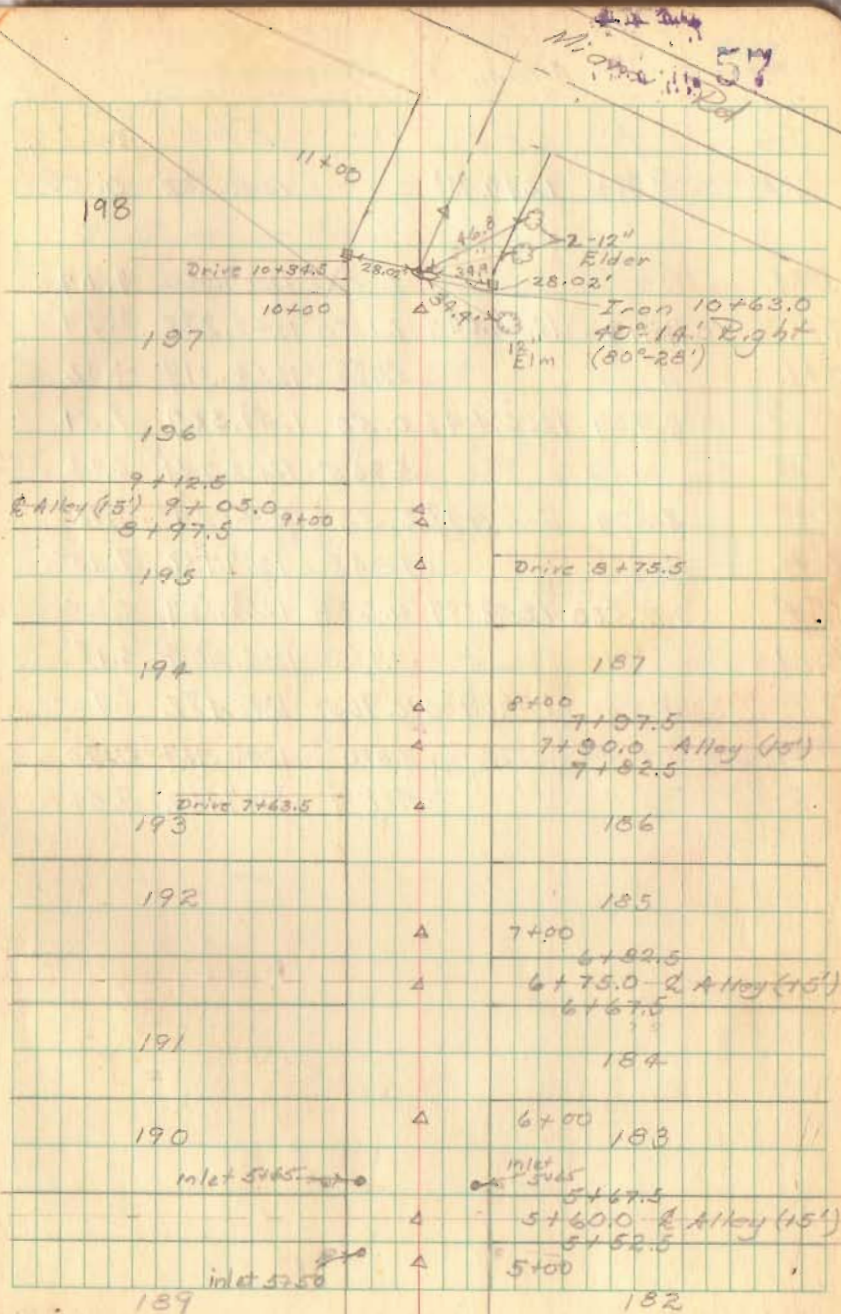 57
Rd
11+00
198
46.8
2-12"
Elder
Drive 10+34.5
28.02'
28.02'
10+00
Iron 10+63.0
197
12"
Elm
40°-14' Right
(80°-28')
196
9+12.5
℄ Alley (15') 9+05.0
9+00
8+97.5
195
Drive 8+75.5
194
187
8+00
7+97.5
7+90.0 Alley (15')
7+82.5
Drive 7+63.5
193
186
192
185
7+00
6+82.5
6+75.0 ℄ Alley (15')
6+67.5
191
184
6+00
190
183
inlet 5+65
inlet
5+65
5+67.5
5+60.0 ℄ Alley (15')
5+52.5
inlet 5+50
5+00
189
182